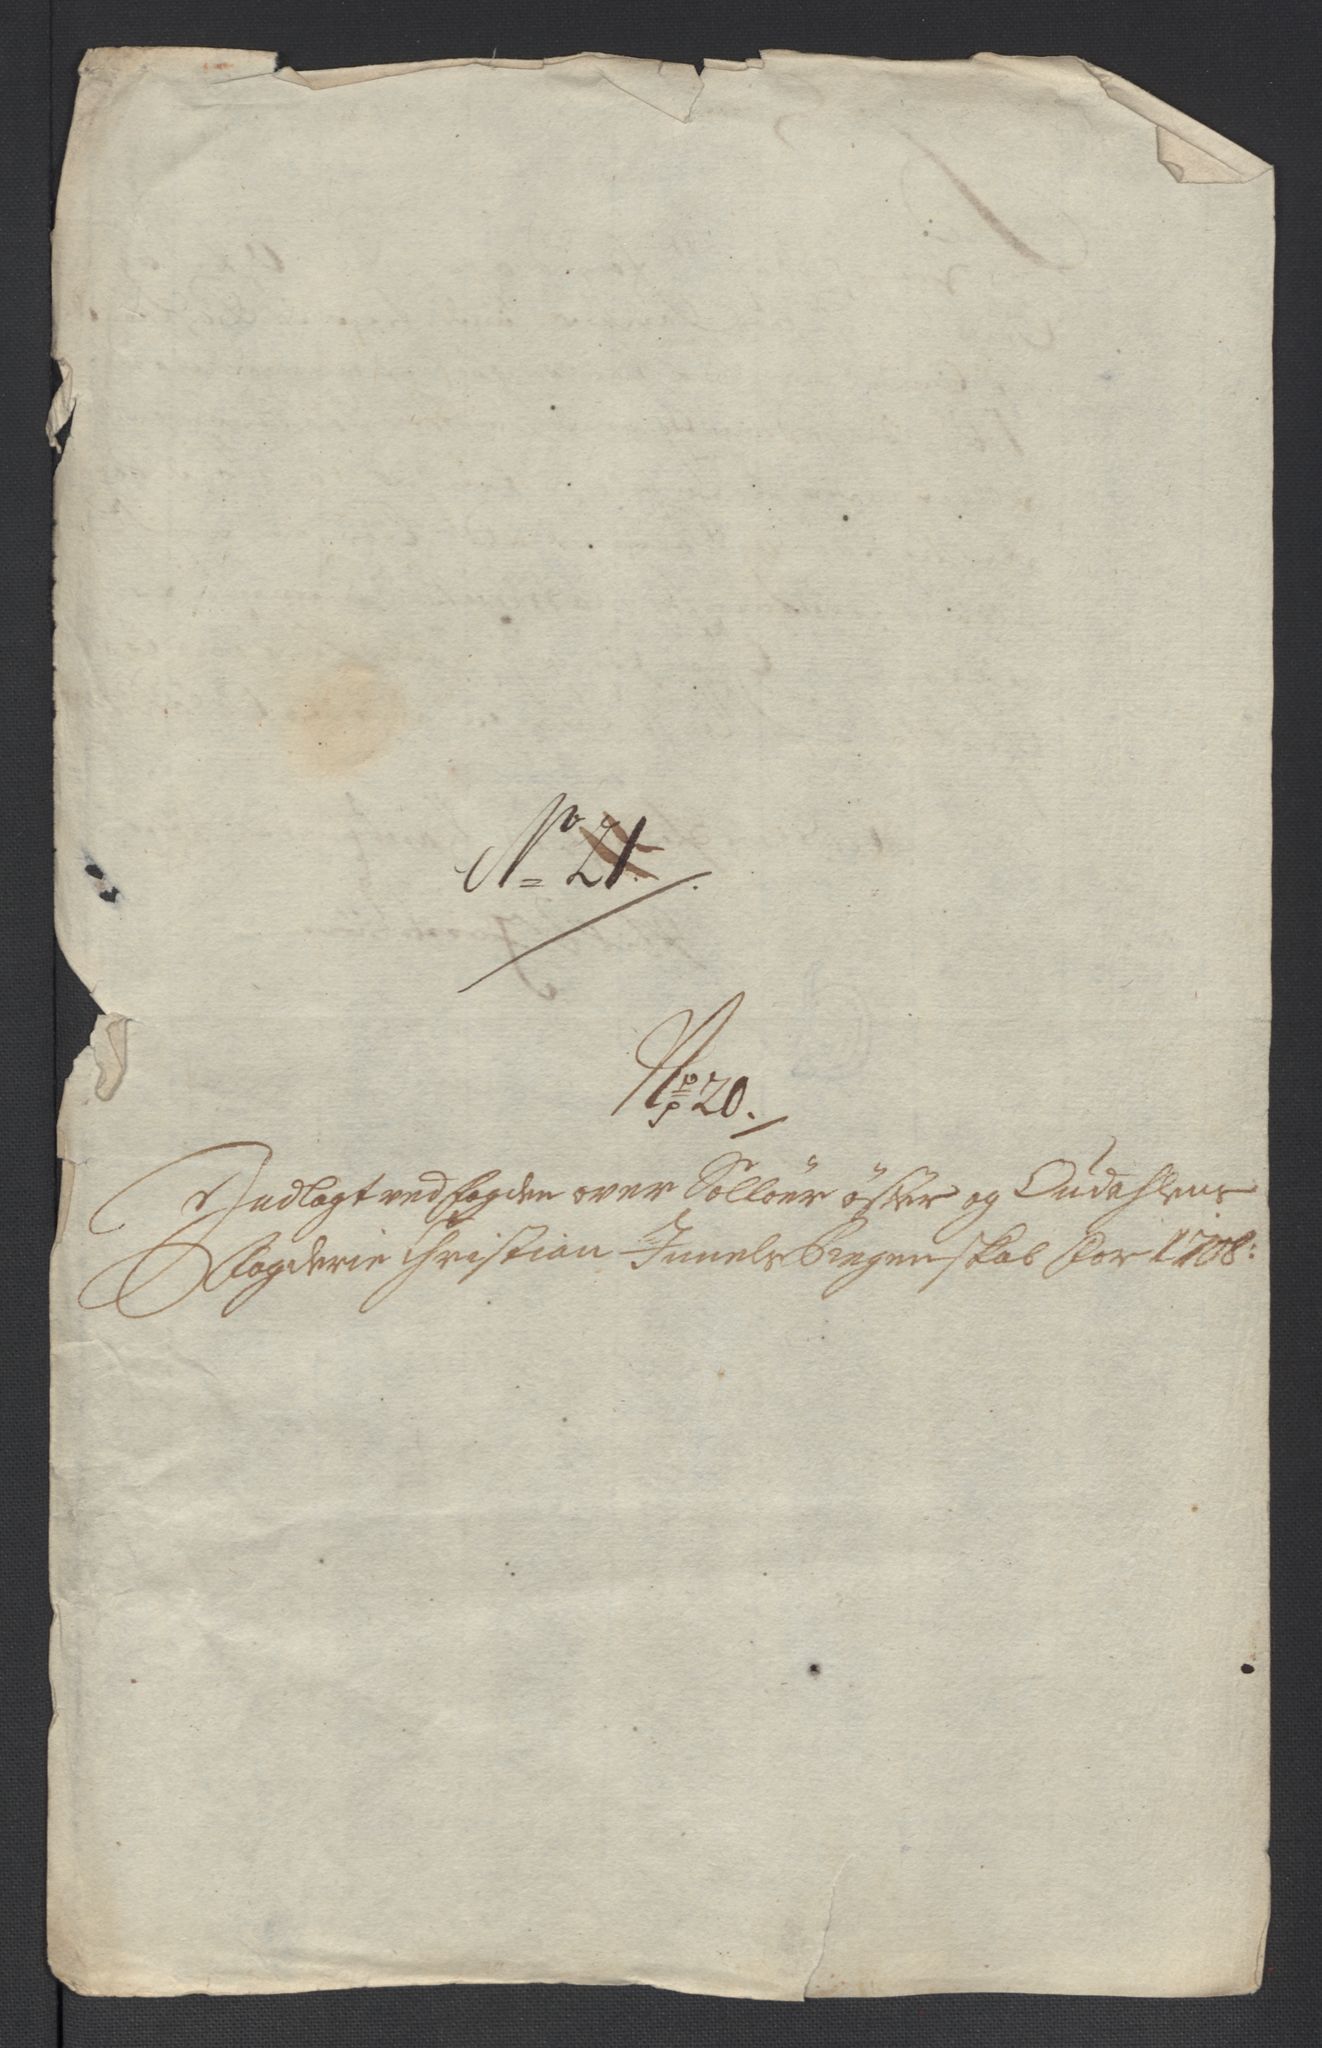 No 21.
No 20.
Indlagt ved fogden over Solloer öster og Oudahlens
fogderie Christian Junels Regenskab for 1708: